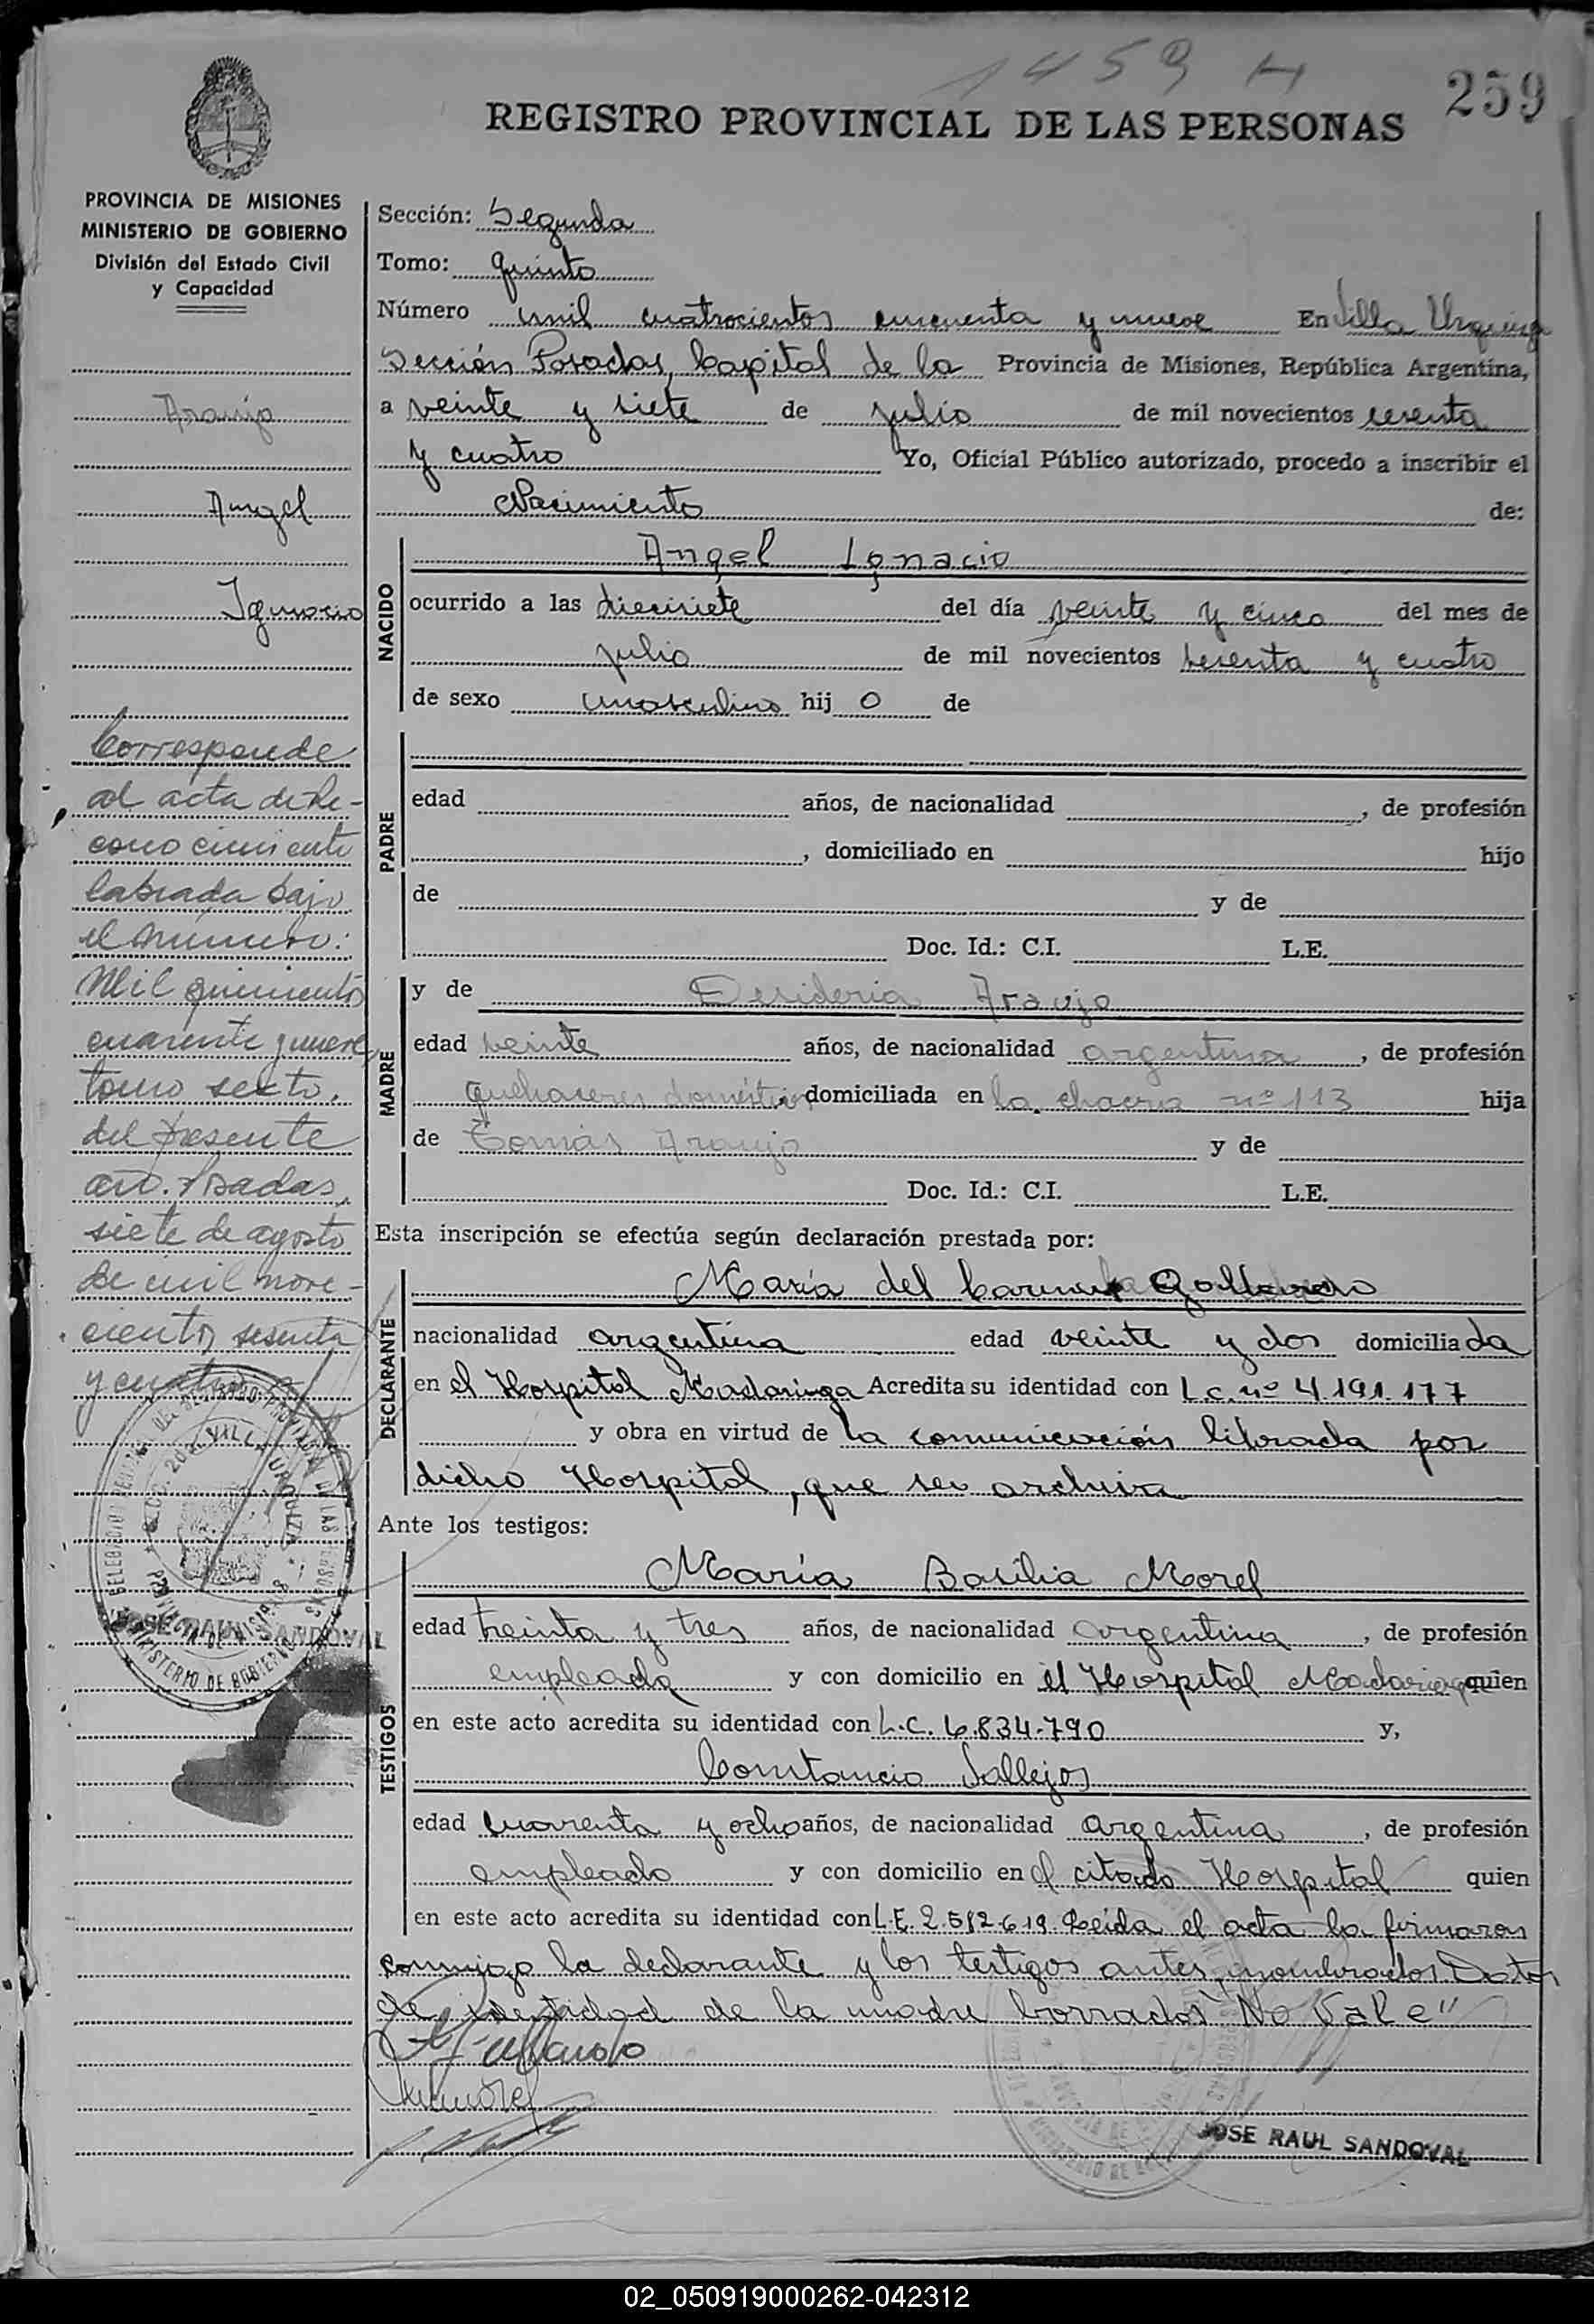 1459 H
259
REGISTRO PROVINCIAL DE LAS PERSONAS
PROVINCIA DE MISIONES
MINISTERIO DE GOBIERNO
División del Estado Civil
y Capacidad
Araujo
Angel
Ignacio
Corresponde
al acta de Re-
conocimiento
labrada bajo
el número:
Mil quiniento
cuarenta y nueve,
tomo sexto,
del presente
año. Posadas,
siete de agosto
de mil nove-
ciento sesenta
y cuatro
JOSE RAUL SANDOVAL
Sección: Segunda
Tomo: Quinto
Número mil cuatrocientos cincuenta y nueve En Villa Urquiza
Sección Posadas, Capital de la Provincia de Misiones, República Argentina,
a veinte y siete de julio de mil novecientos sesenta
y cuatro Yo, Oficial Público autorizado, procedo a inscribir el
Nacimiento de:
NACIDO
Angel Ignacio
ocurrido a las diecisiete del día veinte y cinco del mes de
julio de mil novecientos sesenta y cuatro
de sexo masculino hij o de
PADRE
edad años, de nacionalidad , de profesión
, domiciliado en hijo
de y de
Doc. Id.: C.I. L.E.
MADRE
y de Desideria Araujo
edad veinte años, de nacionalidad argentina, de profesión
quehaceres domésticos domiciliada en la chacra nº 113 hija
de Tomás Araujo y de
Doc. Id.: C.I. L.E.
Esta inscripción se efectúa según declaración prestada por:
DECLARANTE
María del Carmen Gallardo
nacionalidad argentina edad veinte y dos domiciliada
en el Hospital Madariaga Acredita su identidad con L.C. nº 4.191.177
y obra en virtud de la comunicación librada por
dicho Hospital, que se archiva
Ante los testigos:
TESTIGOS
María Basilia Morel
edad treinta y tres años, de nacionalidad argentina, de profesión
empleada y con domicilio en el Hospital Madariaga quien
en este acto acredita su identidad con L.C. 6.834.790 y,
Constancio Vallejos
edad cuarenta y ocho años, de nacionalidad argentina, de profesión
empleado y con domicilio en el citado Hospital quien
en este acto acredita su identidad con L.E. 2.582.619. Leída el acta la firmaron
conmigo la declarante y los testigos antes nombrados. Datos
de identidad de la madre borrados "No Vale"
JOSE RAUL SANDOVAL
02_050919000262-042312